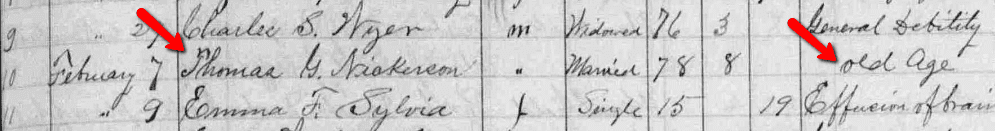 9 " 29 Charles S. Nyer m Widowed 76 3 General Debility
10 February 7 Thomas G. Nickerson " Married 78 8 old Age
11 " 9 Emma F. Sylvia f Single 15 19 Effusion of brain